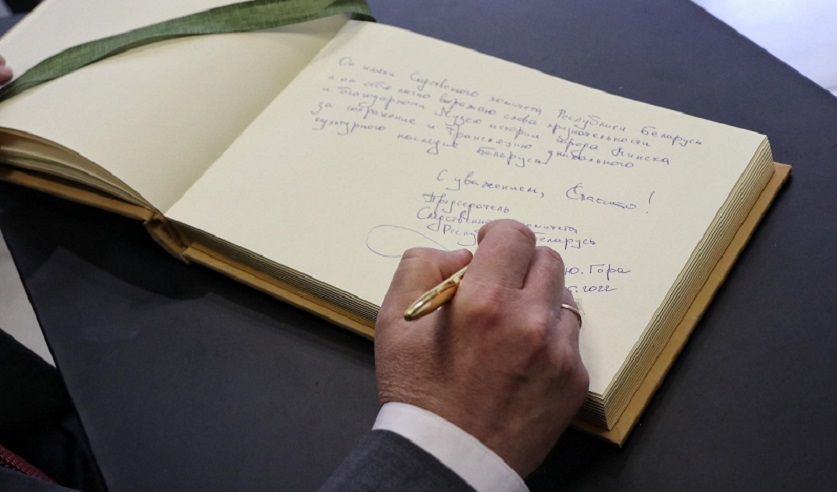 От имени Следственного комитета Республики Беларусь
и от себя лично выражаю слова признательности
и благодарности Музею истории города Минска
за сохранение и трансляцию глобального
культурного наследия Беларуси
С уважением, Спасибо!
Председатель
Следственного комитета
Республики Беларусь
Ю. Гора
2022